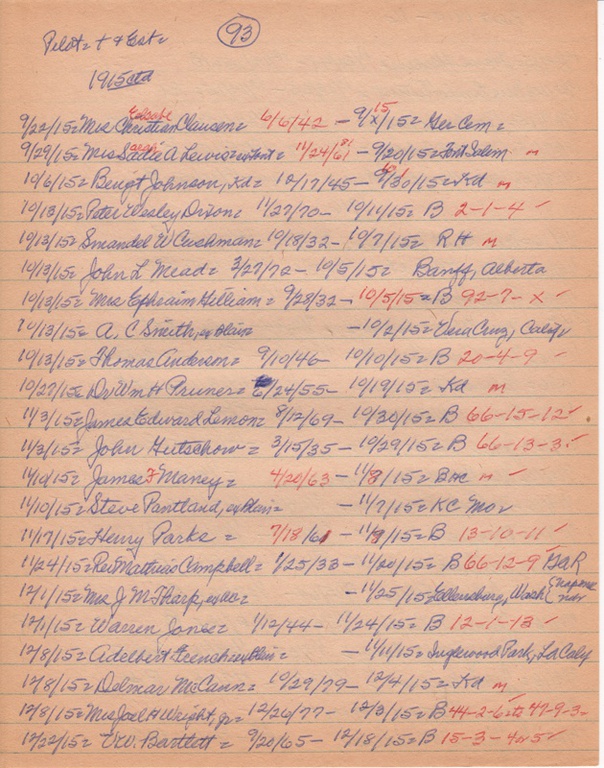 Pilot = t + Gst = 93
1915 ctd
9/22/15 = Mrs Christian Clausen = 6/6/42 — 9/15/15 = Ger Cem =
9/29/15 = Mrs Sadie A Lewis = 11/24/61 — 9/20/15 = Fort Salem m
10/6/15 = Bengt Johnson, Kd = 12/17/45 — 9/30/15 = Kd m
10/13/15 = Peter Wesley Dixon = 11/27/70 — 10/11/15 = B 2-1-4 ✓
10/13/15 = Smandel W Cushman = 10/18/32 — 10/7/15 = RH m
10/13/15 = John L Mead = 3/27/72 — 10/5/15 = Banff, Alberta
10/13/15 = Mrs Ephraim Gilliam = 9/28/32 — 10/5/15 = B 92-7-x ✓
10/13/15 = A, C Smith, ex Plain = — 10/2/15 = Vera Cruz, Calif
10/13/15 = Thomas Anderson = 9/10/46 — 10/10/15 = B 20-4-9 ✓
10/27/15 = Dr Wm H Pruner = 6/24/55 — 10/19/15 = Kd m
11/3/15 = James Edward Lemon = 8/12/69 — 10/30/15 = B 66-15-12 ✓
11/3/15 = John Gutschow = 3/15/35 — 10/29/15 = B 66-13-3 ✓
11/10/15 = James F Maney = 4/20/63 — 11/8/15 = m ✓
11/10/15 = Steve Pantland, ex Plain = — 11/7/15 = KC Mo
11/17/15 = Henry Parks = 7/18/61 — 11/9/15 = B 13-10-11 ✓
11/24/15 = Rev Matthias Campbell = 1/25/33 — 11/20/15 = B 66-12-9 GaR
12/1/15 = Mrs J M Tharp, ex = — 11/25/15 Ellensburg, Wash
12/1/15 = Warren Jones = 1/12/44 — 11/24/15 = B 12-1-13 ✓
12/8/15 = Adelbert French ex Plain = — 11/11/15 = Inglewood Park, La Calif
12/8/15 = Delmar McCann = 10/29/79 — 12/4/15 = Kd m
12/8/15 = Mrs Joel H Wright, Jr = 12/26/77 — 12/3/15 = B 44-2-6 47-9-3
12/22/15 = V.W. Bartlett = 9/20/65 — 12/18/15 = B 15-3-4 or 5 ✓